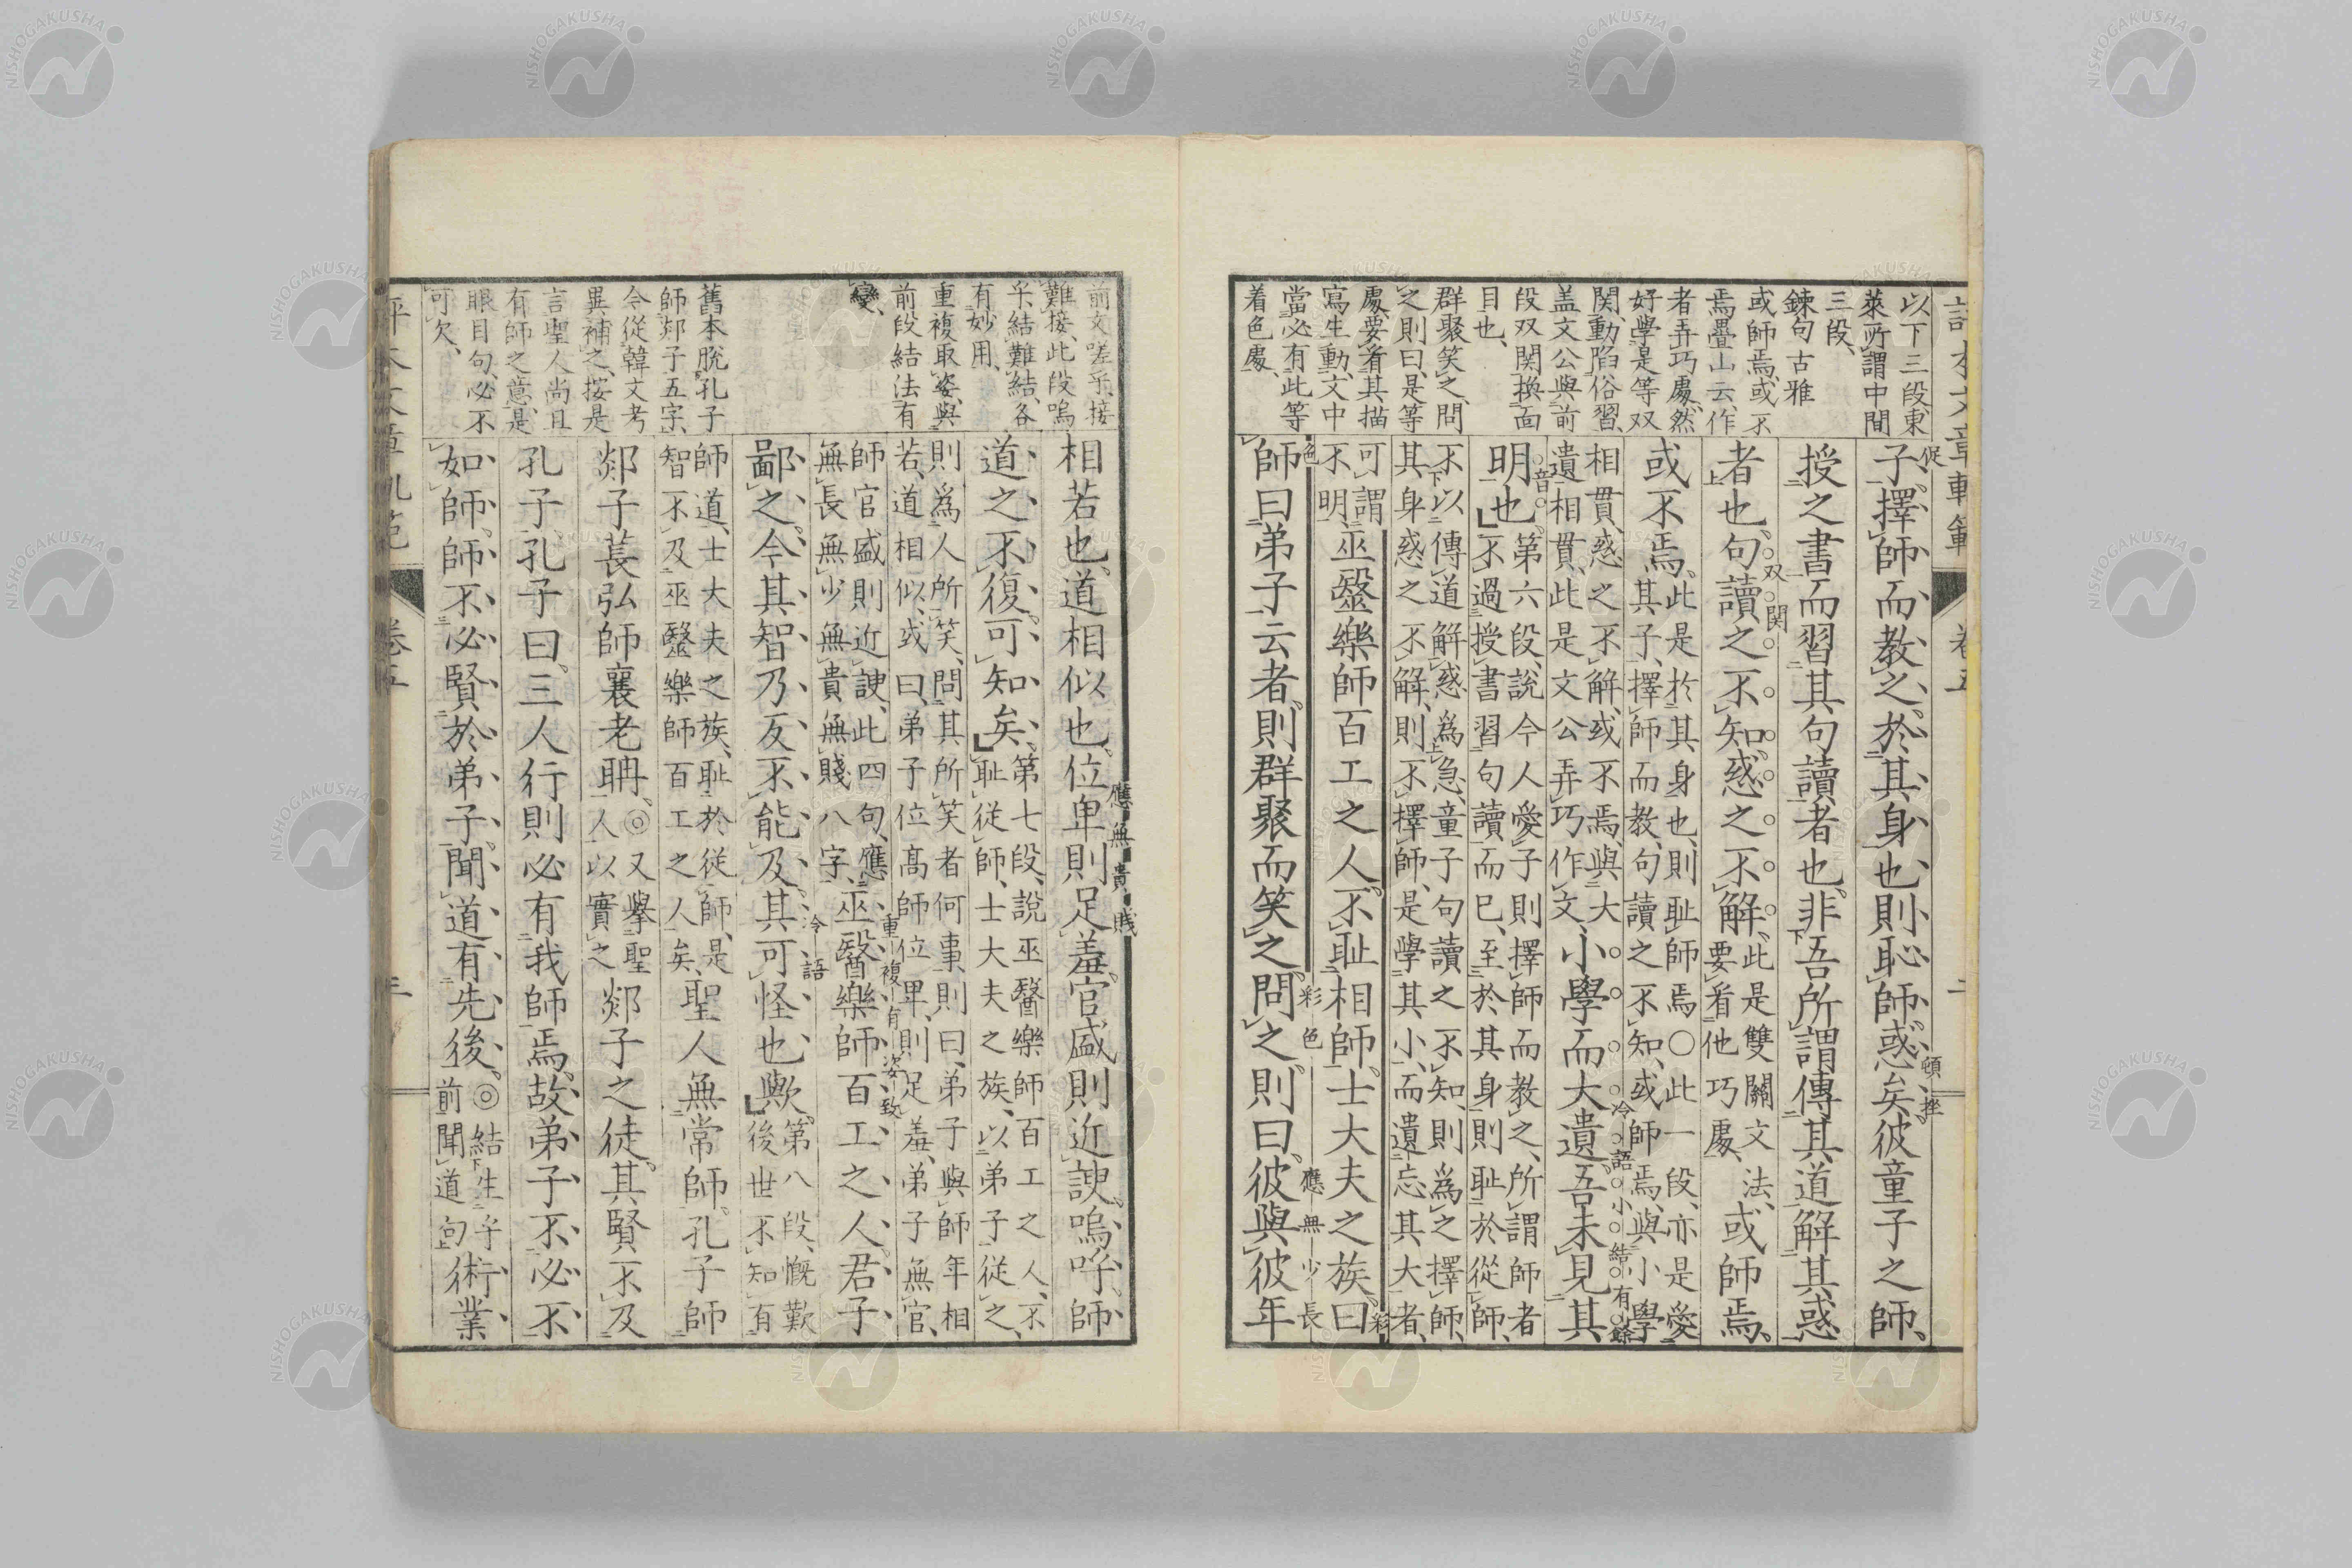 評本文章軌範 卷五 二
以下三段、東
萊所謂中間
三段、
鍊句古雅
或師焉、或不
焉、疊山云、作
者弄巧處、然
好學是等双
関、動陷俗習、
盖文公與前
段双関換面
目也、
群聚笑之、問
之則曰、是等
處、要看其描
寫生動、文中
當必有此等
着色處、
子、擇師而教之、於其身也、則恥師、惑矣、彼童子之師、
促
頓挫
授之書而習其句讀者也、非吾所謂傳其道解其惑
者也、句讀之不知、惑之不解、
双関
此是雙關文法、
要看他巧處、
或師焉、
或不焉、
此是於其身也、則耻師焉〇此一段、亦是愛
其子、擇師而教、句讀之不知、或師焉、與小學
相貫、惑之不解、或不焉、與大
遺相貫、此是文公弄巧作文、
小學而大遺、吾未見其
冷語小結有餘音
明也、
第六段、說今人愛子則擇師而教之、所謂師者
不過授書習句讀而已、至於其身、則耻於從師、
不以傳道解惑爲急、童子句讀之不知、則爲之擇師、
其身惑之不解、則不擇師、是學其小、而遺忘其大者、
可謂
不明
巫毉樂師百工之人、不耻相師、士大夫之族、曰
彩色
師曰弟子云者、則群聚而笑之、問之、則曰、彼與彼年
彩色
應無少長
相若也、道相似也、位卑則足羞、官盛則近諛、嗚呼、師
應無貴賤
道之不復可知矣、
第七段、說巫醫樂師百工之人、不
耻從師、士大夫之族、以弟子從之、
則爲人所笑、問其所笑者何事、則曰、弟子與師年相
若、道相似、或曰、弟子位髙師位卑、則足羞、弟子無官、
師官盛則近諛、此四句、應
無長無少無貴無賤八字、
巫醫樂師百工之人、君子
重複有姿致
鄙之、今其智乃反不能及、其可怪也歟、
冷語
第八段、慨歎
後世不知有
師道、士大夫之族、耻於從師、是
智不及巫毉樂師百工之人矣、
聖人無常師、孔子師
郯子萇弘師襄老聃、
◎又擧聖
人以實之
郯子之徒、其賢不及
孔子、孔子曰、三人行則必有我師焉、故弟子不必不
如師、師不必賢於弟子、聞道有先後、
◎結生乎
前聞道句
術業
前文嗟乎、接
難接、此段嗚
乎、結難結、各
有妙用、
重複取姿、與
前段結法有
變、
舊本脫孔子
師郯子五字、
今從韓文考
異補之、按是
言聖人尚且
有師之意、是
眼目句、必不
可欠、
評本文章軌範 卷五